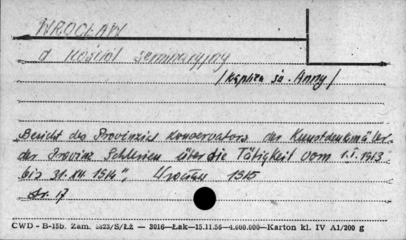 WROCŁAW
d kościół seminaryjny
/kaplica św. Anny/
Bericht des Provinzial Konservators der Kunstdenkmäler
der Provinz Schlesien über die Tätigkeit vom 1.I.1913
bis 31.XII 1914", Wrocław 1915
str. 17
CWD - B-15b. Zam. 5823/S/Łż — 3016—Łak—15.11.56—4.000.000—Karton kl. IV A1/200 g